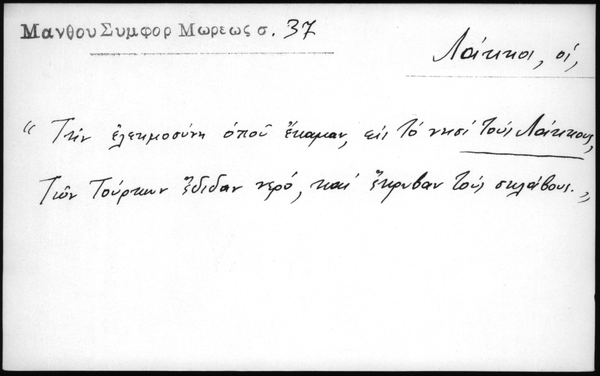 Μανθου Συμφορ Μωρεως σ. 37
Λάκκοι, οἱ,
“ Τὴν ἐλεημοσύνη ὁποῦ ἔκαμαν, εἰς τὸ νησί τοὺς Λάκκους,
Τῶν Τούρκων ἔδιδαν νερό, καί ἔκρυβαν τοὺς σκλάβους. „